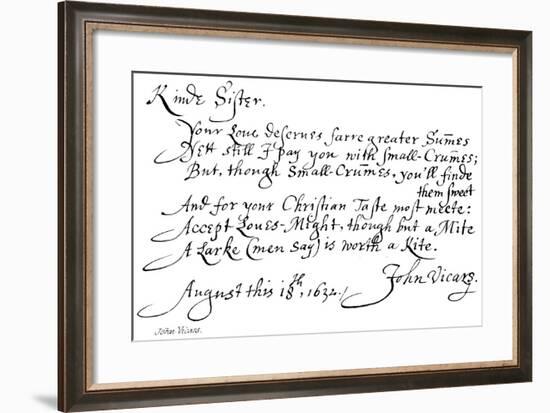 Kinde Sister.
Your Loue deserues farre greater Sum̄es
Yett still I pay you with small-Crum̄es;
But, though Small-Crum̄es, you'll finde
them sweet
And for your Christian Taste most meete:
Accept Loues-Might, though but a Mite
A Larke (men say) is worth a Kite.
John Vicars.
August this 18th, 1634./
John Vicars.